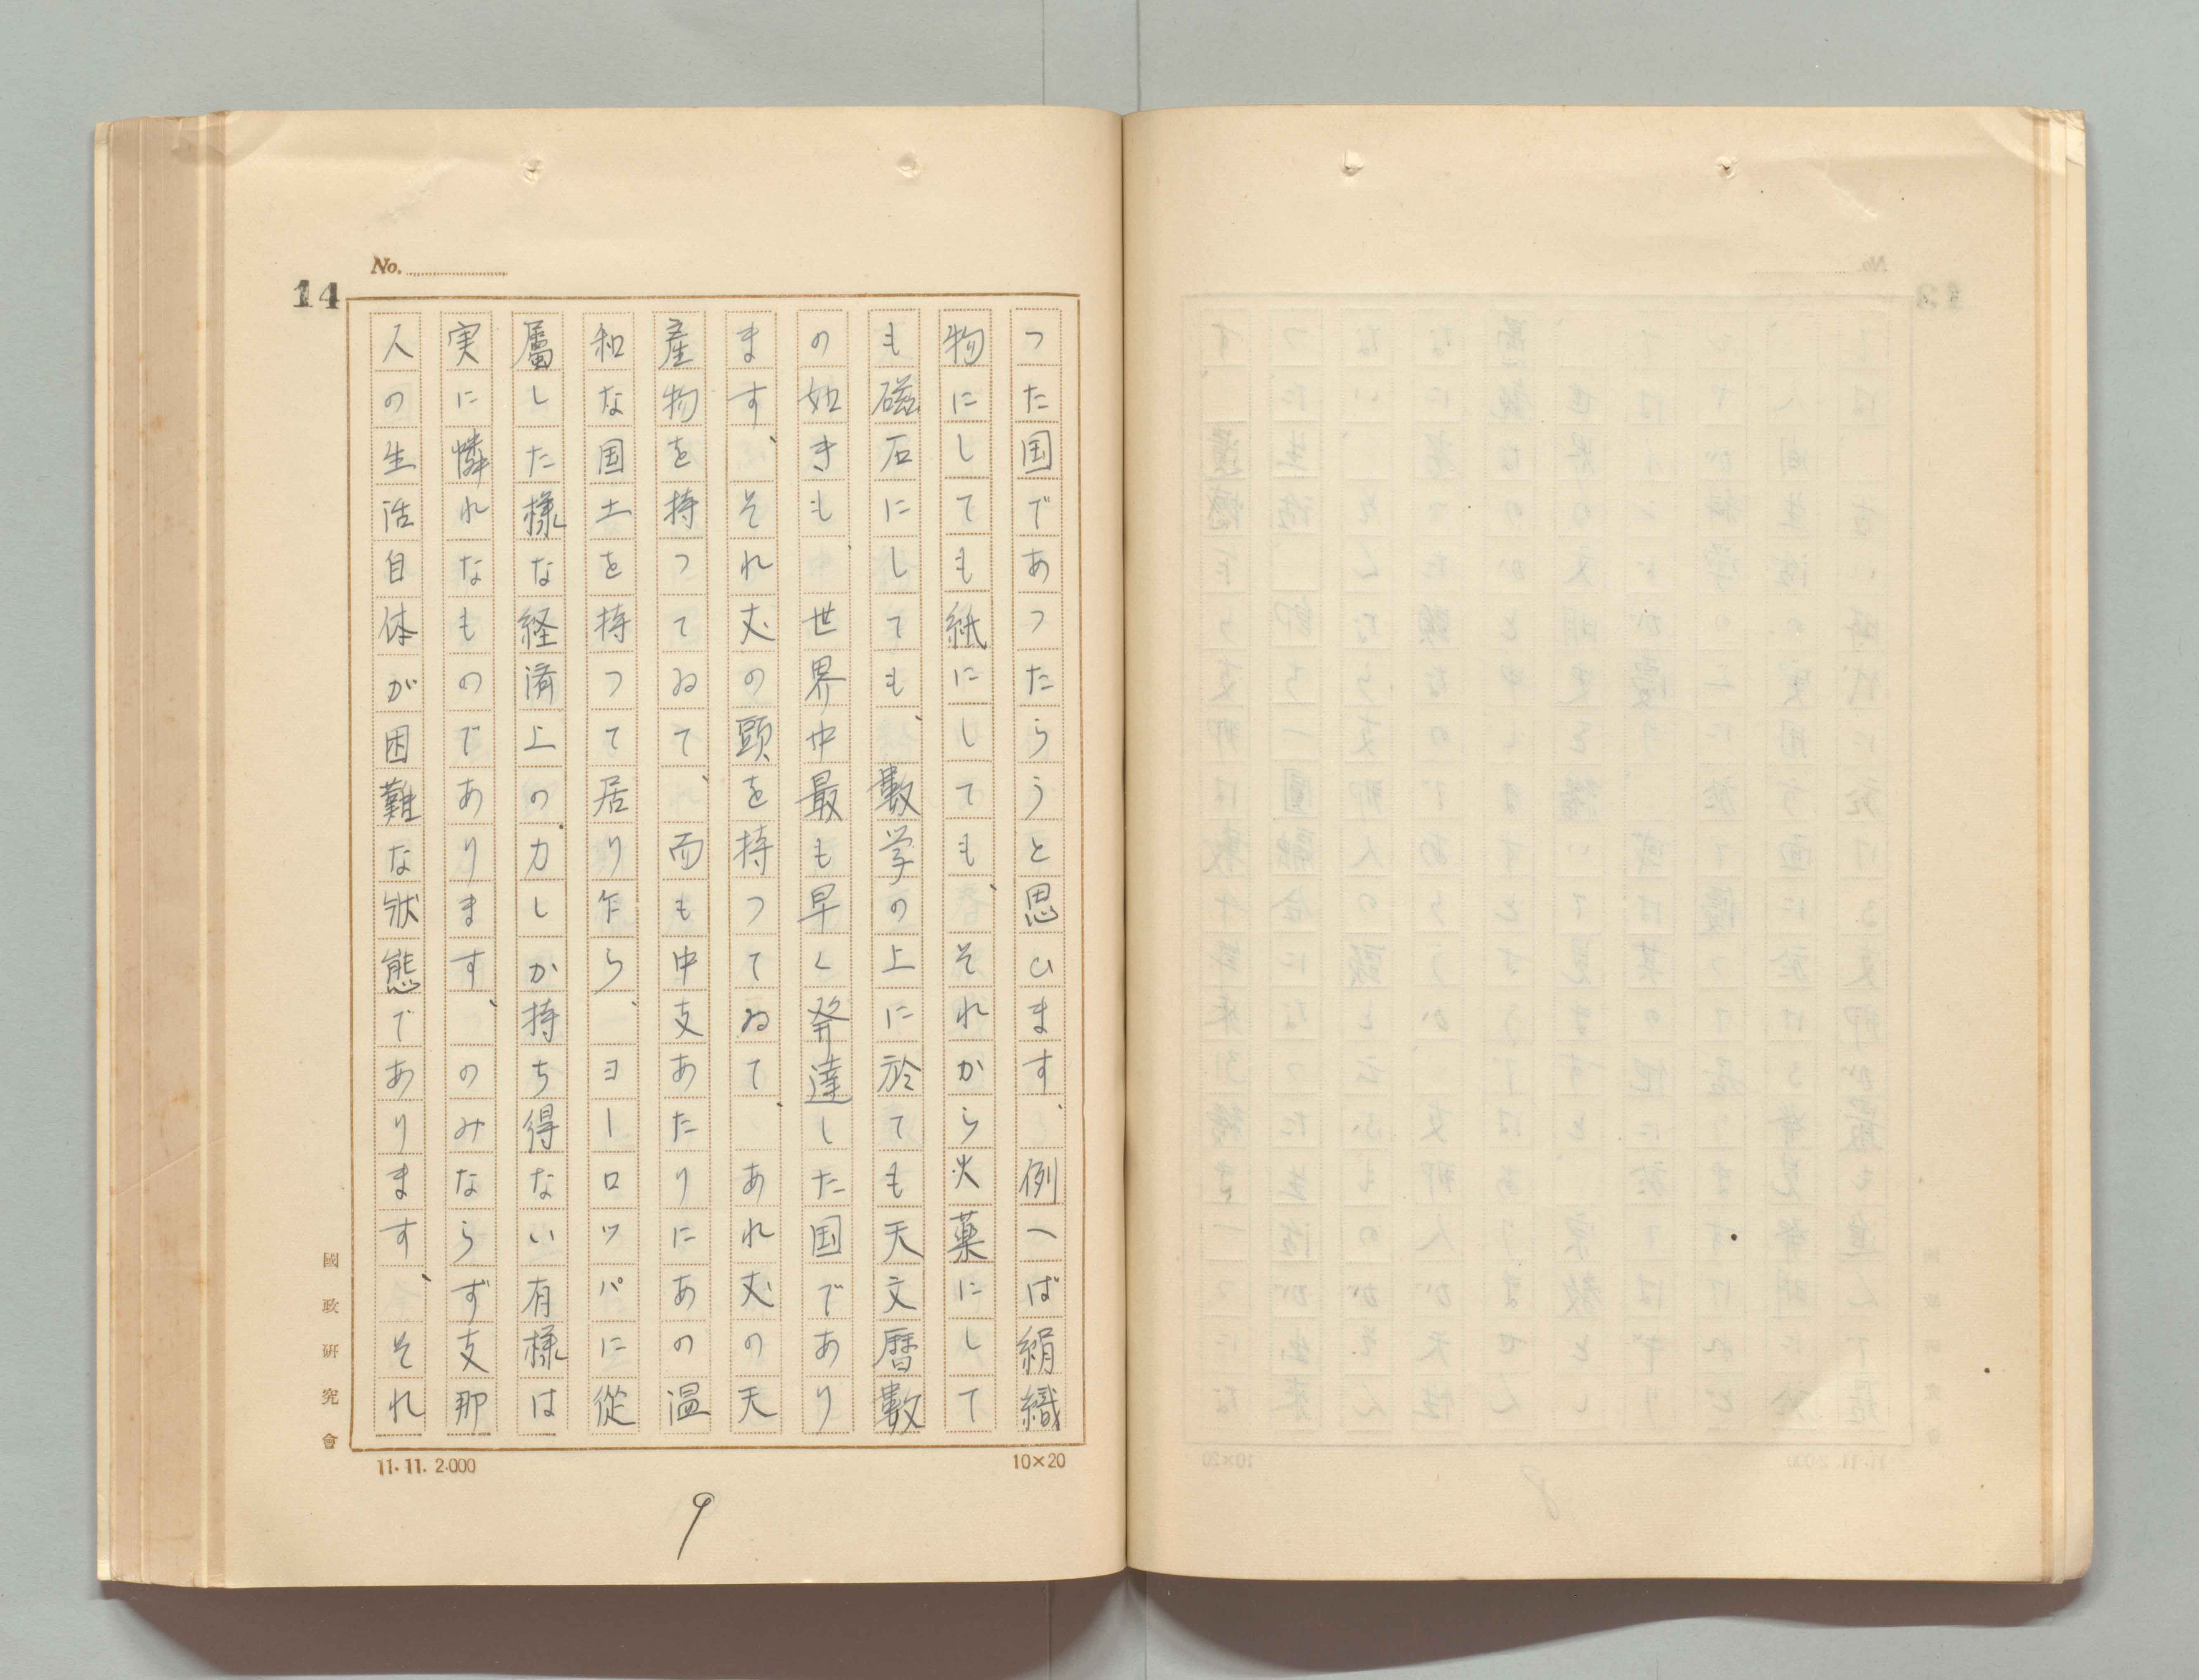 No.
14
つた国であつたらうと思ひます、例へば絹織
物にしても紙にしても、それから火薬にして
も磁石にしても、数学の上に於ても天文暦数
の如きも、世界中最も早く発達した国であり
ます、それ丈の頭を持つてゐて、あれ丈の天
産物を持つてゐて、而も中支あたりにあの温
和な国土を持つて居り乍ら、ヨーロッパに従
属した様な経済上の力しか持ち得ない有様は
実に憐れなものであります、のみならず支那
人の生活自体が困難な状態であります、それ
國政研究會
11.11.2.000
10×20
9